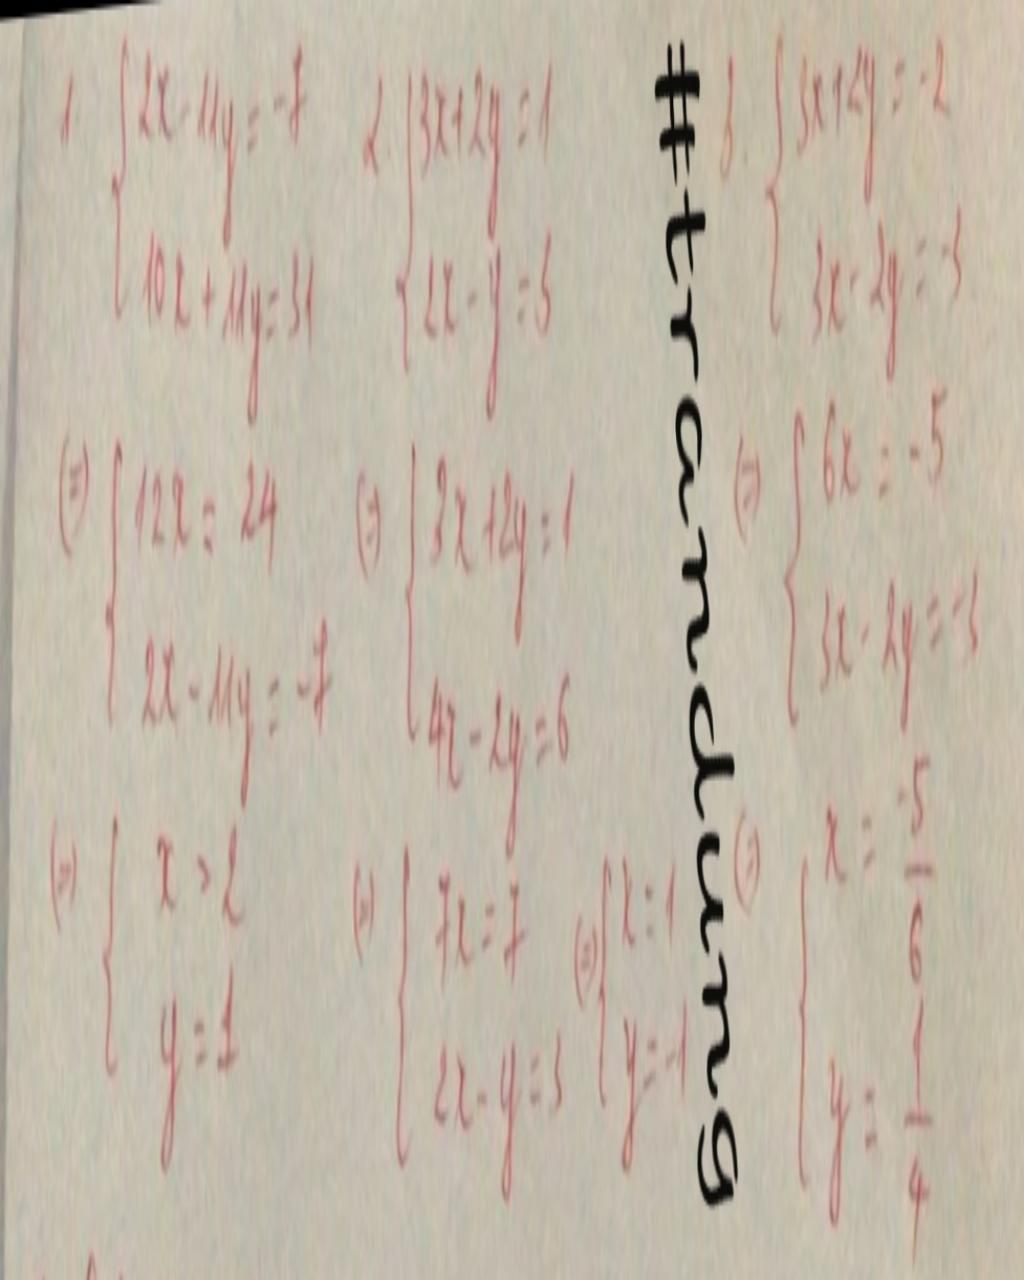 1. { 2x - 11y = -7
10x + 11y = 31
(=) { 12x = 24
2x - 11y = -7
(=) { x = 2
y = 1
2. { 3x + 2y = 1
2x - y = 3
(=) { 3x + 2y = 1
4x - 2y = 6
(=) { 7x = 7
2x - y = 3
(=) { x = 1
y = -1
#trandung
3. { 3x + 2y = -2
3x - 2y = -3
(=) { 6x = -5
3x - 2y = -3
(=) { x = -5/6
y = 1/4